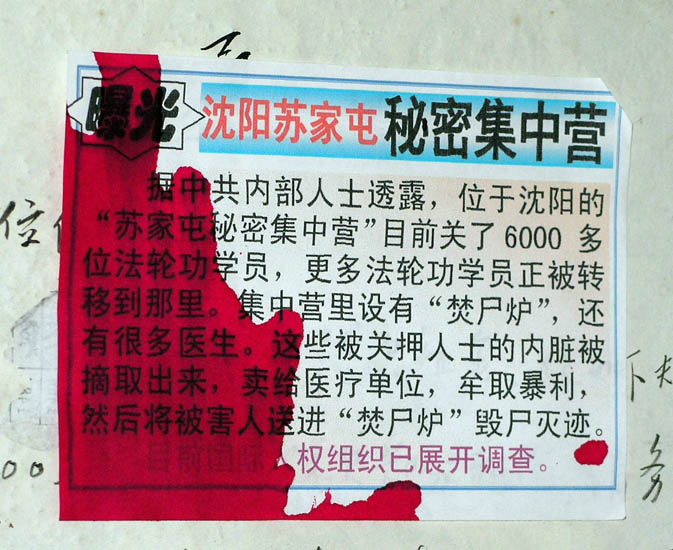 曝光 沈阳苏家屯 秘密集中营
据中共内部人士透露，位于沈阳的
“苏家屯秘密集中营”目前关了 6000 多
位法轮功学员，更多法轮功学员正被转
移到那里。集中营里设有“焚尸炉”，还
有很多医生。这些被关押人士的内脏被
摘取出来，卖给医疗单位，牟取暴利，
然后将被害人送进“焚尸炉”毁尸灭迹。
人权组织已展开调查。
位
下
务
00